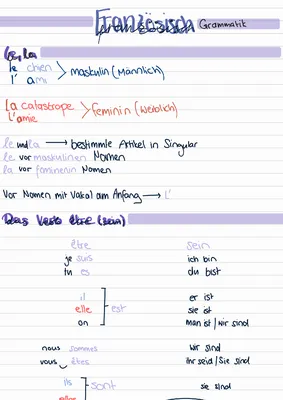 Französisch Grammatik
le, la
le chien
l' ami
maskulin (Männlich)
La catastrope
L'amie
feminin (Weiblich)
le und la → bestimmte Artikel in Singular
le vor maskulinen Nomen
la vor femininen Nomen
Vor Nomen mit Vokal am Anfang → l'
Das Verb être (sein)
être sein
je suis ich bin
tu es du bist
il er ist
elle est sie ist
on man ist / wir sind
nous sommes wir sind
vous êtes ihr seid / Sie sind
ils sont sie sind
elles